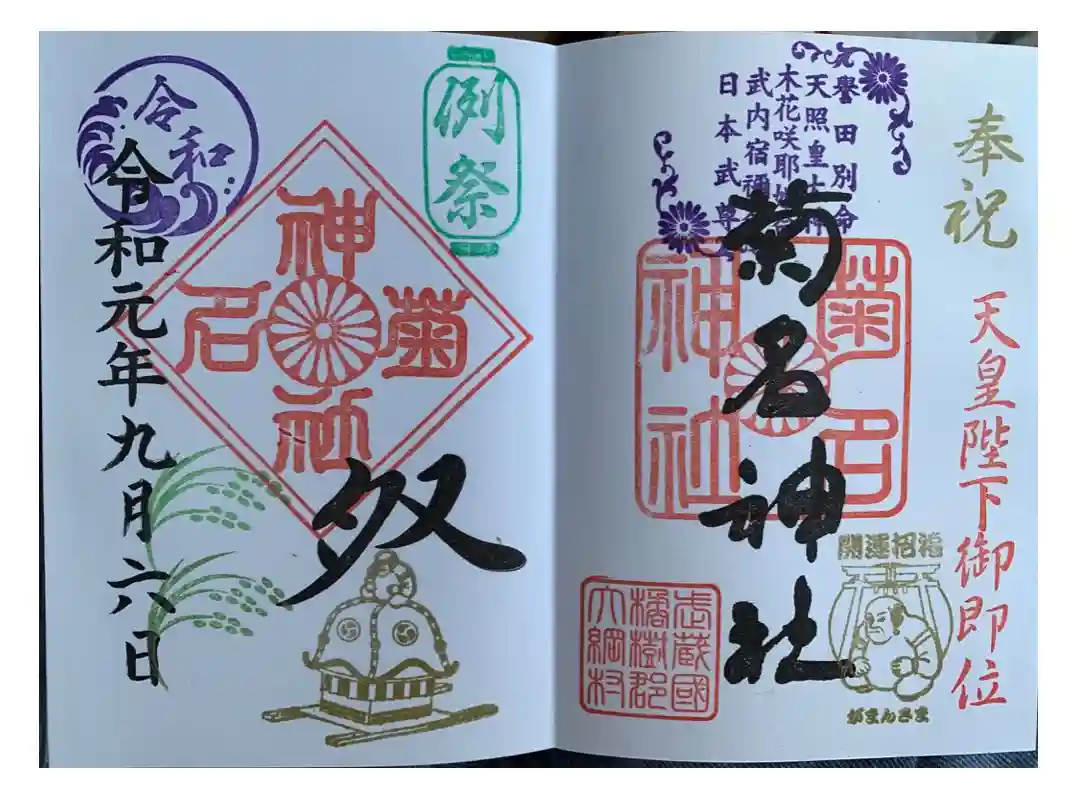 奉祝
天皇陛下御即位
譽田別命
天照皇大神
木花咲耶姫命
武内宿禰命
日本武尊
菊名神社
菊名
神社
開運招福
がまんさま
武蔵國
橘樹郡
大綱村
例祭
菊名
神社
令和
令和元年九月六日